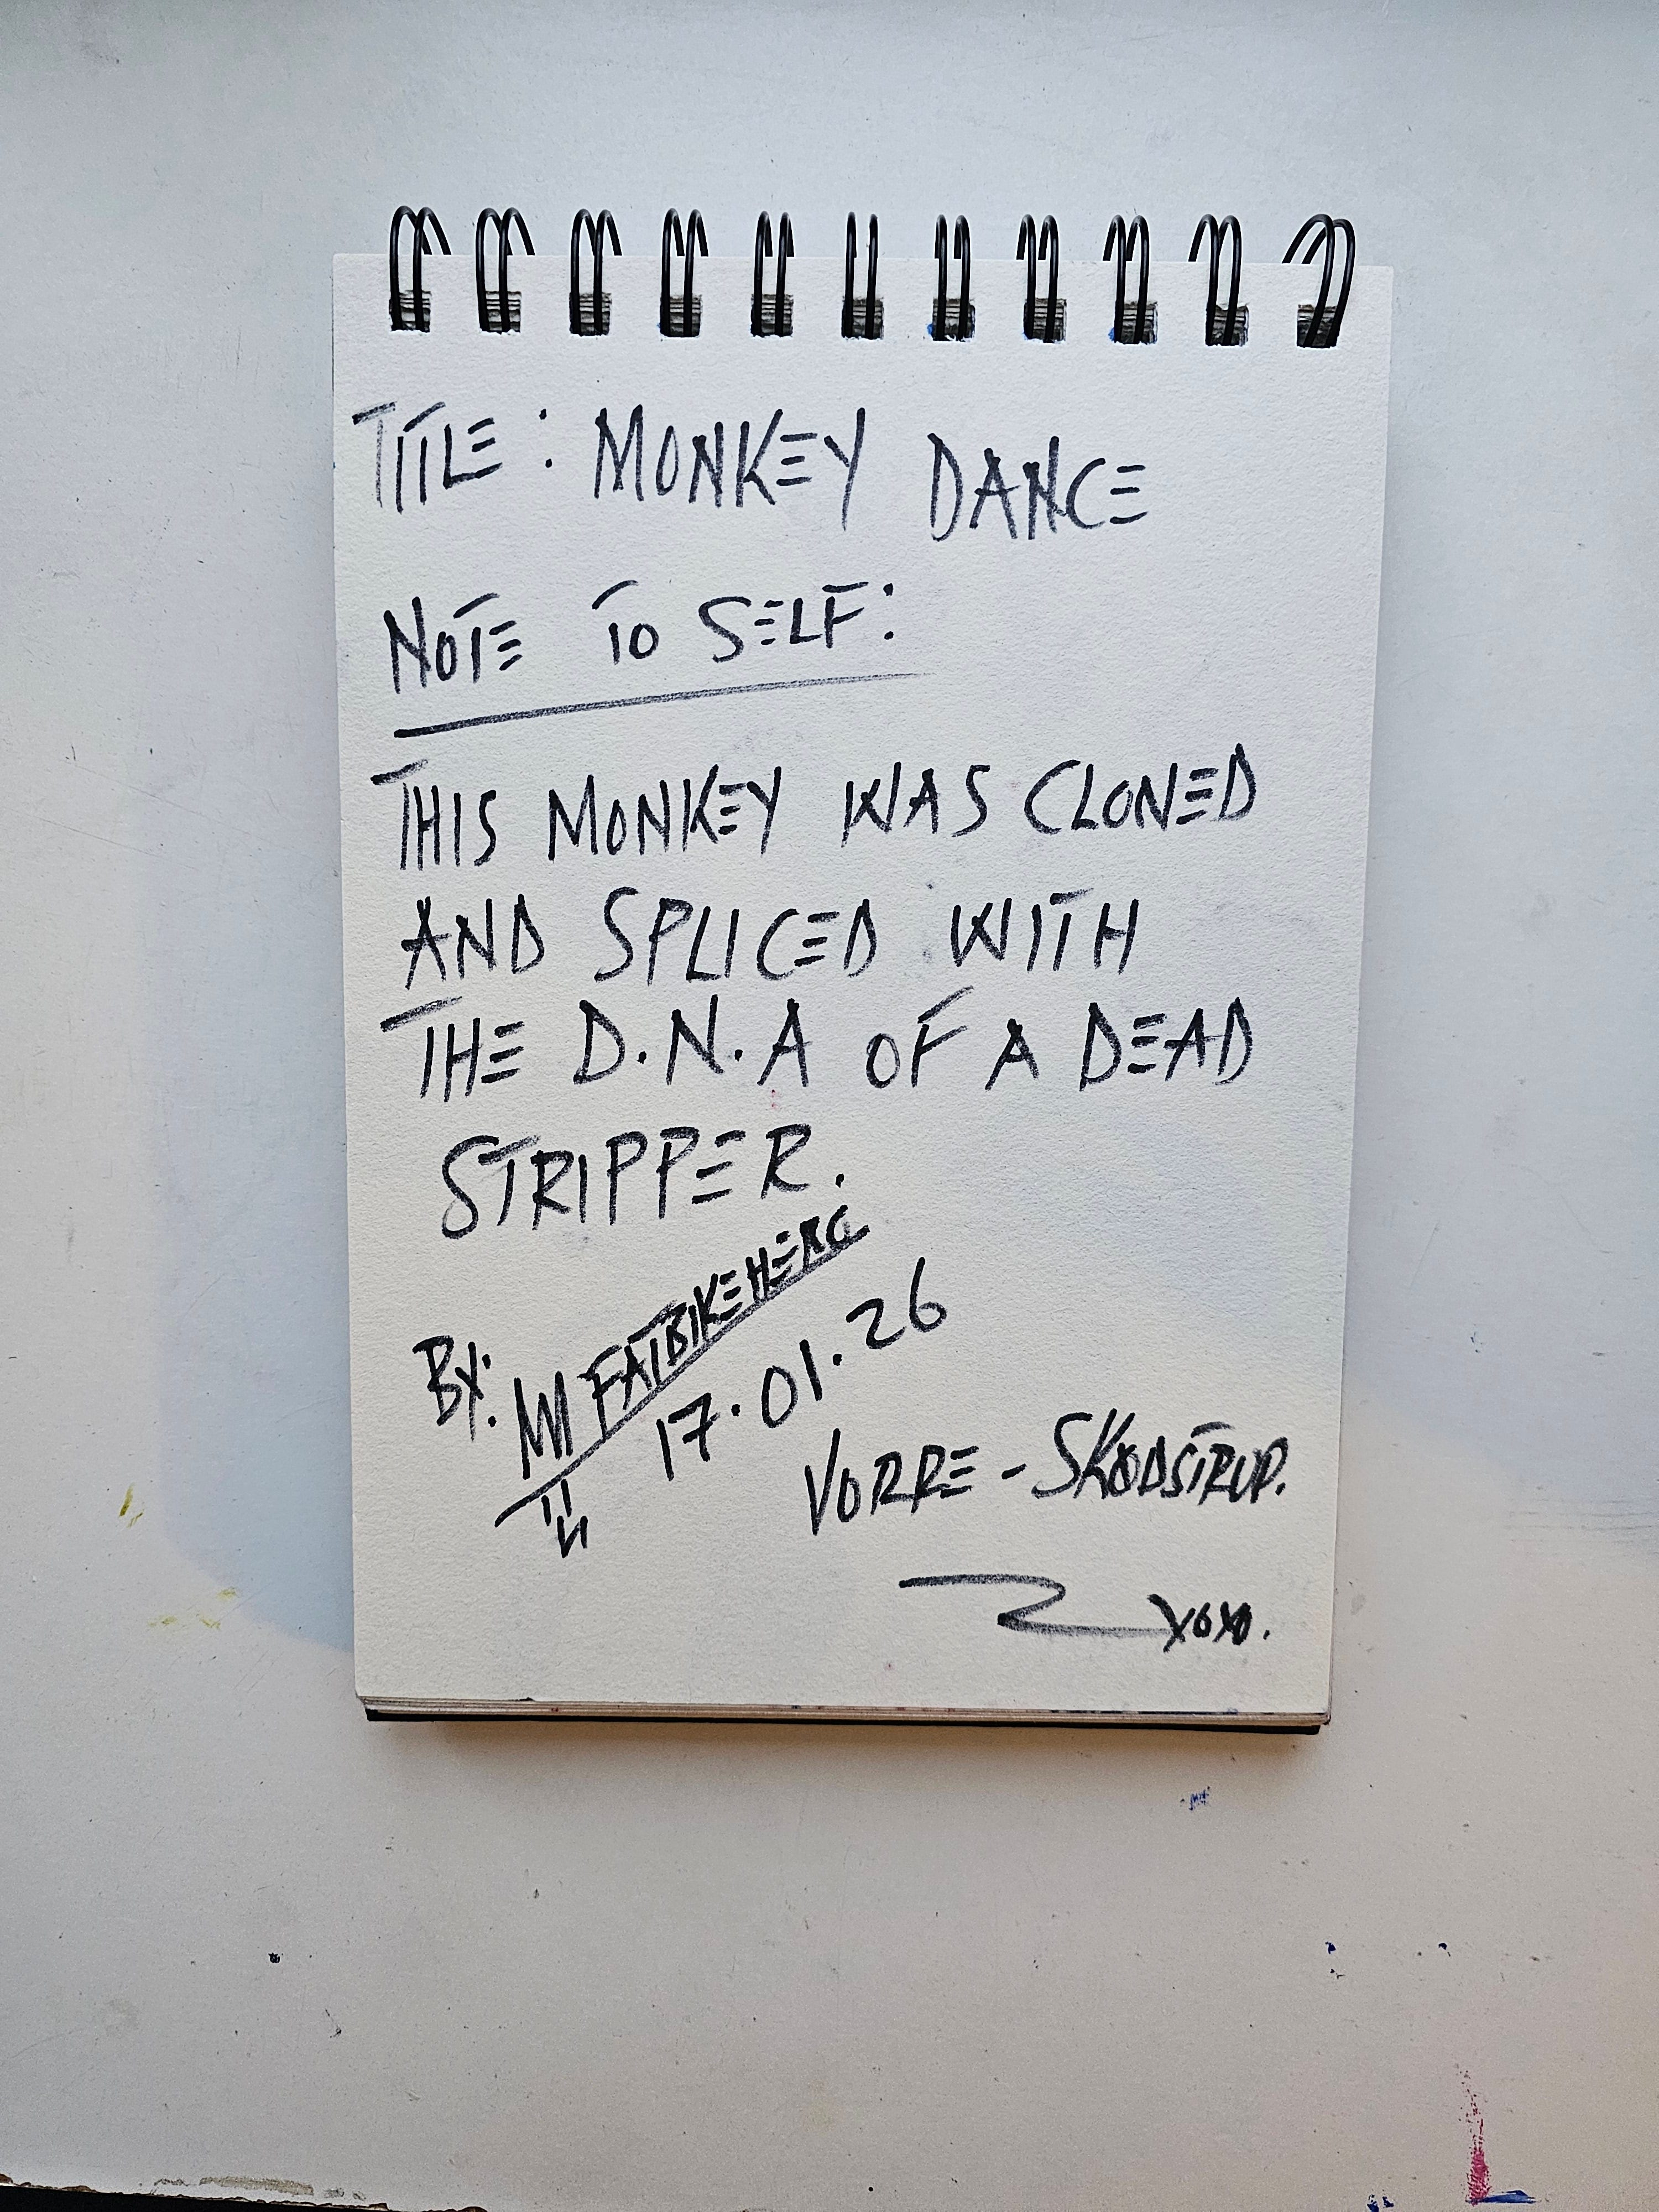 TITLE: MONKEY DANCE
NOTE TO SELF:
THIS MONKEY WAS CLONED
AND SPLICED WITH
THE D.N.A OF A DEAD
STRIPPER.
BY: FATBIKEHERO
17.01.26
VORRE - SKØDSTRUP.
XOXO.